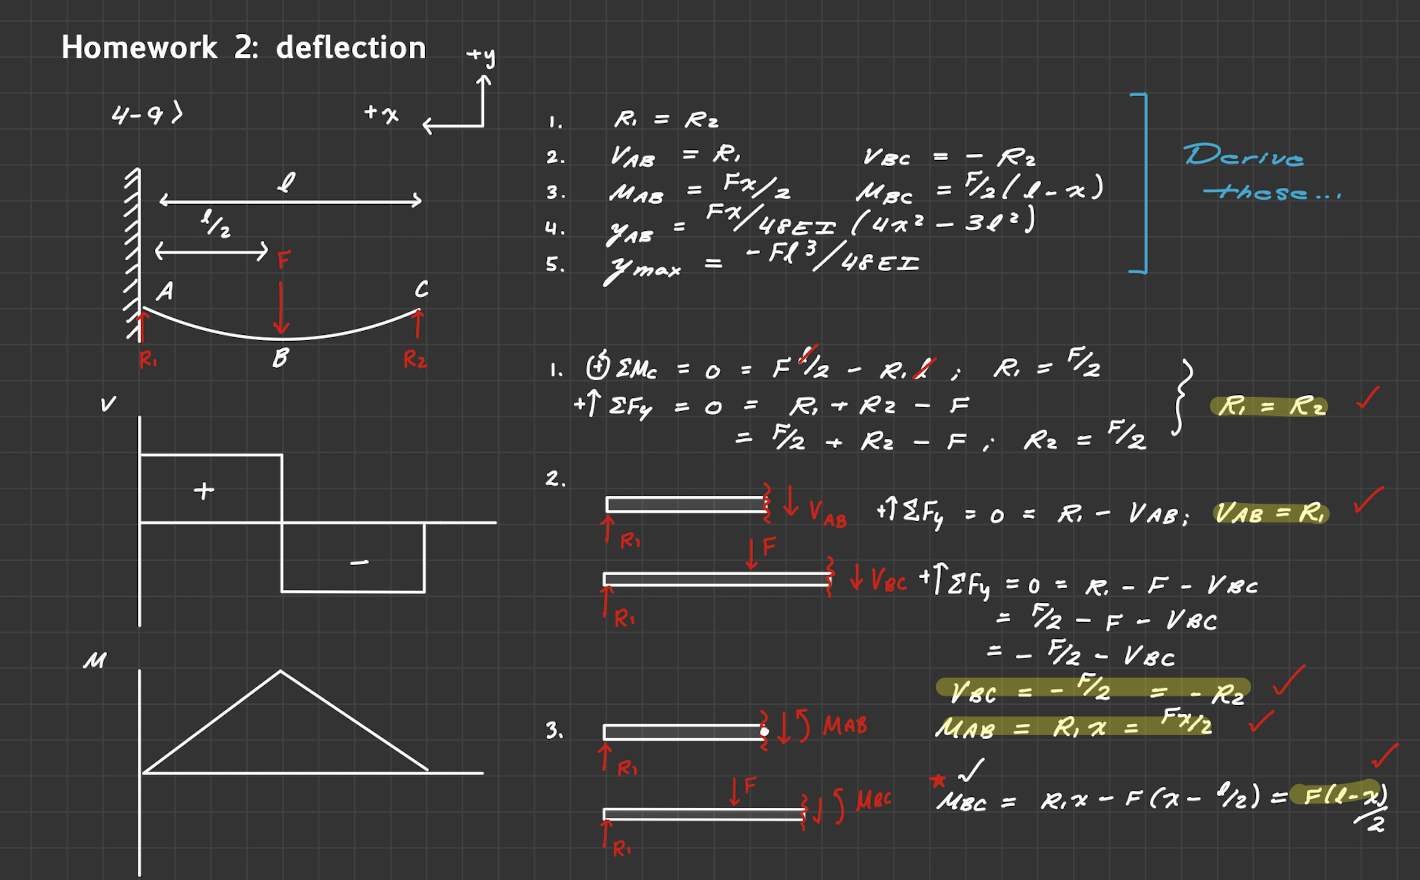 Homework 2: deflection
+y
4-9>
+x
l
l/2
F
A
C
R₁
B
R₂
1. R₁ = R₂
2. VAB = R₁ VBC = - R₂
3. MAB = Fx/2 MBC = F/2 (l - x)
4. yAB = Fx/48EI (4x² - 3l²)
5. ymax = -Fl³/48EI
Derive
these...
1. + ΣMc = 0 = F l/2 - R₁l ; R₁ = F/2
+↑ ΣFy = 0 = R₁ + R₂ - F
= F/2 + R₂ - F ; R₂ = F/2
R₁ = R₂ ✓
V
+
-
2.
VAB
R₁
+↑ ΣFy = 0 = R₁ - VAB; VAB = R₁ ✓
F
VBC
R₁
+↑ ΣFy = 0 = R₁ - F - VBC
= F/2 - F - VBC
= - F/2 - VBC
VBC = - F/2 = - R₂ ✓
M
3.
MAB
R₁
MAB = R₁x = Fx/2 ✓
F
MBC
R₁
★ ✓
MBC = R₁x - F(x - l/2) = F(l-x)/2 ✓